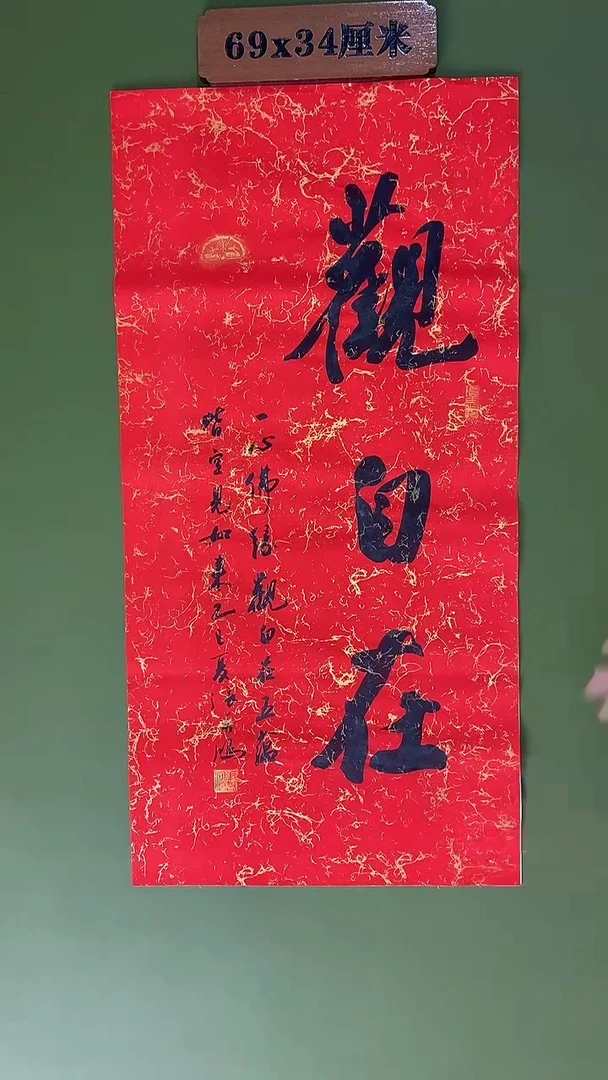 69x34厘米
觀自在
一心佛緣觀自在五蘊
皆空見如來乙巳夏